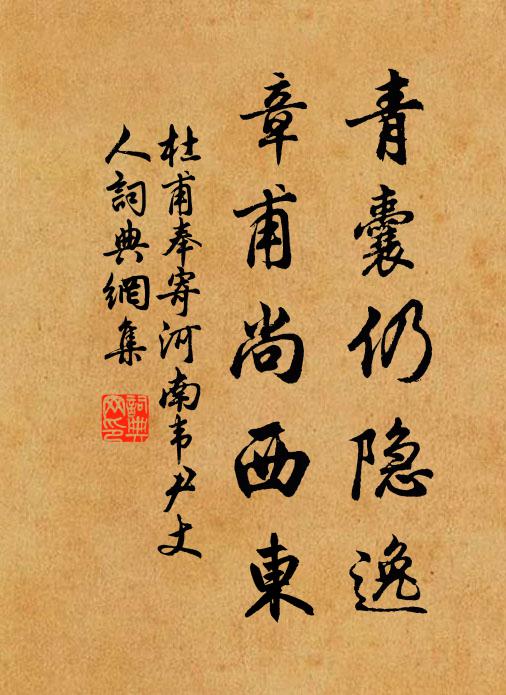 青囊仍隐逸
章甫尚西東
杜甫奉寄河南韦尹丈
人詞典網集
詞典
网印